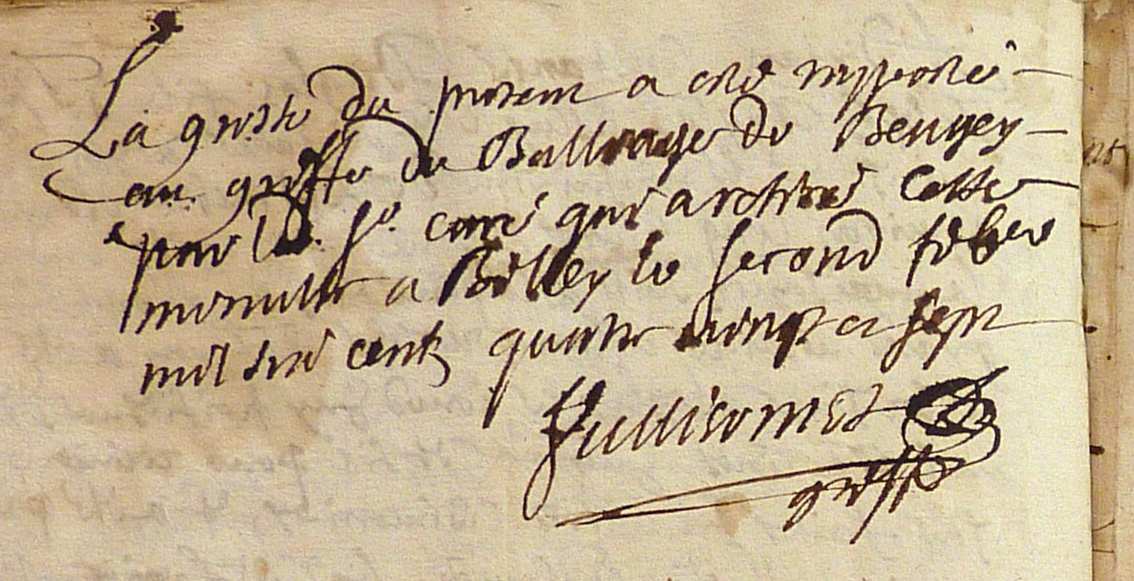 La grosse du presen a esté rapportée
au greffe du Balliage de Beugey
par led. Sr. curé qui a retiré cette
minutte a Belley le second feber
mil six cent quatre vingt et sept
greff